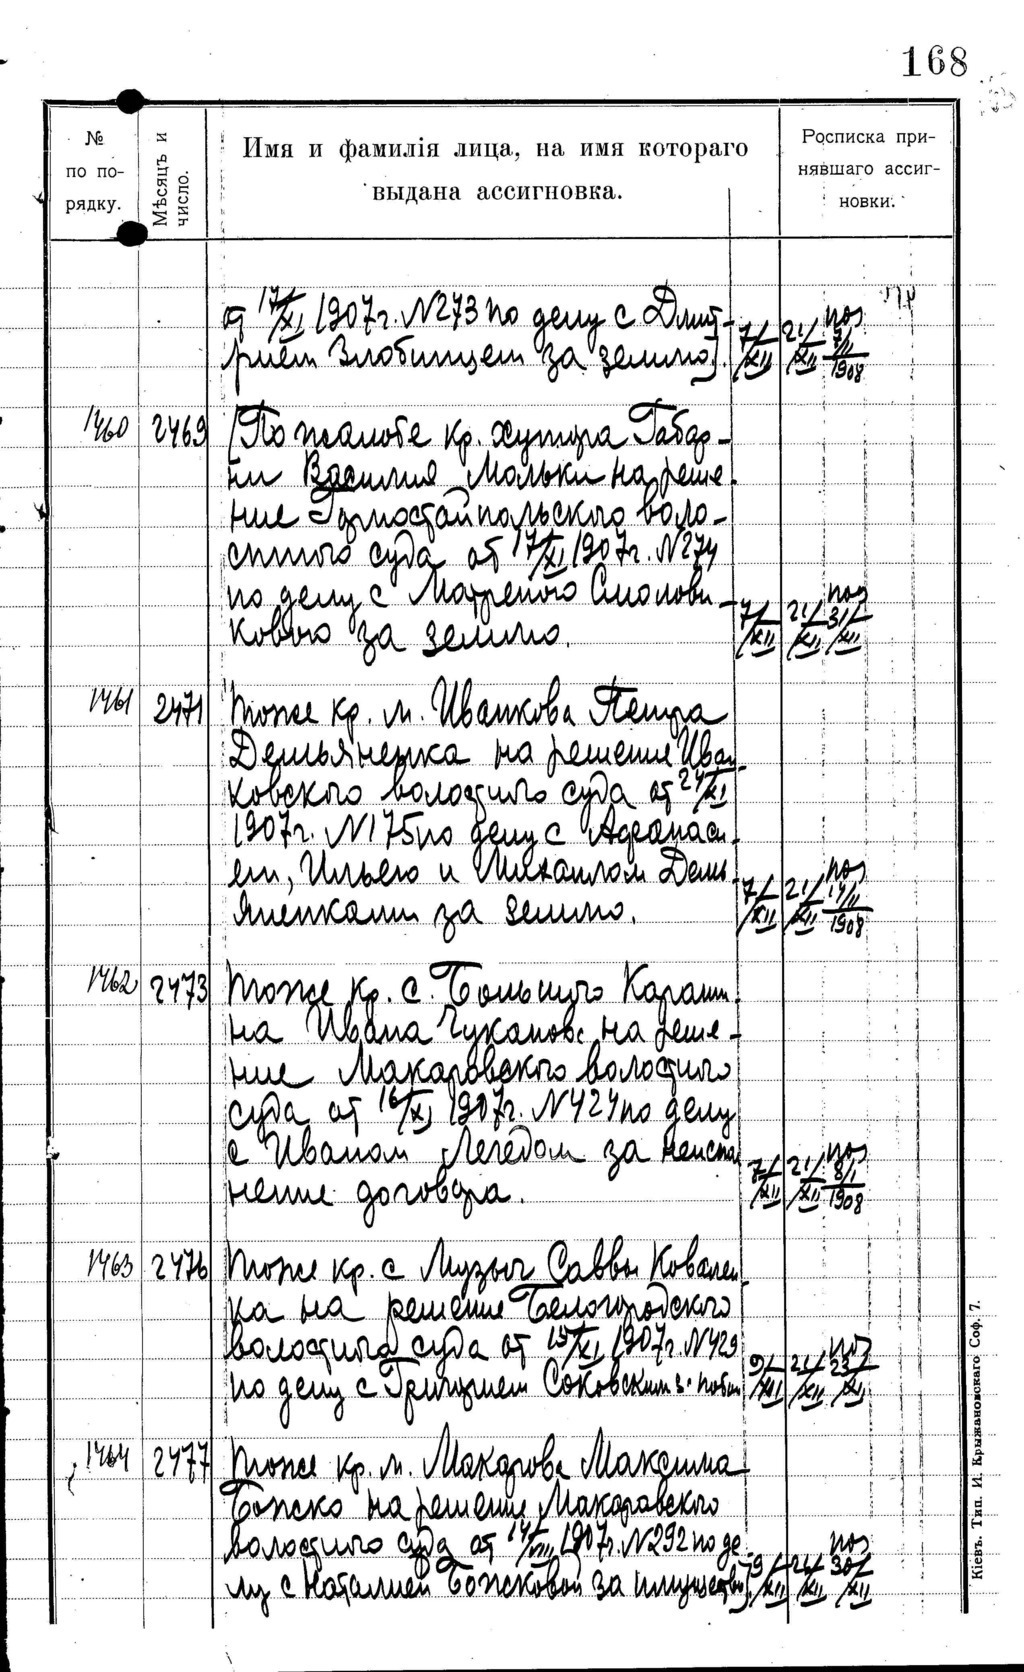 168
№ по порядку.
Мѣсяцъ и число.
Имя и фамилія лица, на имя котораго
выдана ассигновка.
Росписка при-
нявшаго ассиг-
новки.
от 17/XI 1907г. N273 по делу с Дмит-
рием Злобинцем за землю]. 7/XII 21/XII
1908
1460 2469 [По жалобе кр. хутора Габар-
ни Василия Мольки на реше-
ние Горностайпольского воло-
стного суда от 17/XI 1907г. N274
по делу с Матреною Смолови-
ковою за землю. 7/XII 21/XII 31/XII
1461 2471 тоже кр. м. Иванкова Петра
Демьяненка на решение Иван-
ковского волостного суда от 24/XI
1907г. N175 по делу с Афанаси-
ем, Ильею и Михаилом Демь-
яненками за землю. 7/XII 21/XII 14/II 1908
1462 2473 тоже кр. с. Большого Караши-
на Ивана Чуканова на реше-
ние Макаровского волостного
суда от 16/XI 1907г. N424 по делу
с Иваном Легедом за неиспол
нение договора. 7/XII 21/XII 8/I 1908
1463 2476 тоже кр. с Музыч Саввы Ковален-
ка на решение Белогородского
волостного суда от 15/XI 1907г. N429
по делу с Григорием Соковским 9/XII 21/XII 23/XII
1464 2477 тоже кр. м. Макарова Максима
Божско на решение Макаровского
волостного суда от 14/VIII 1907г. N292 по де-
лу с Наталией Божсковой за имущество]. 9/XII 21/XII 30/XII
Кіевъ. Тип. И. Крыжановскаго Соф. 7.